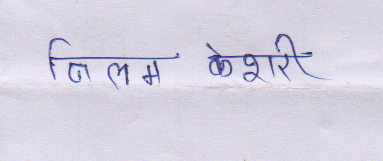 निलम केशरी